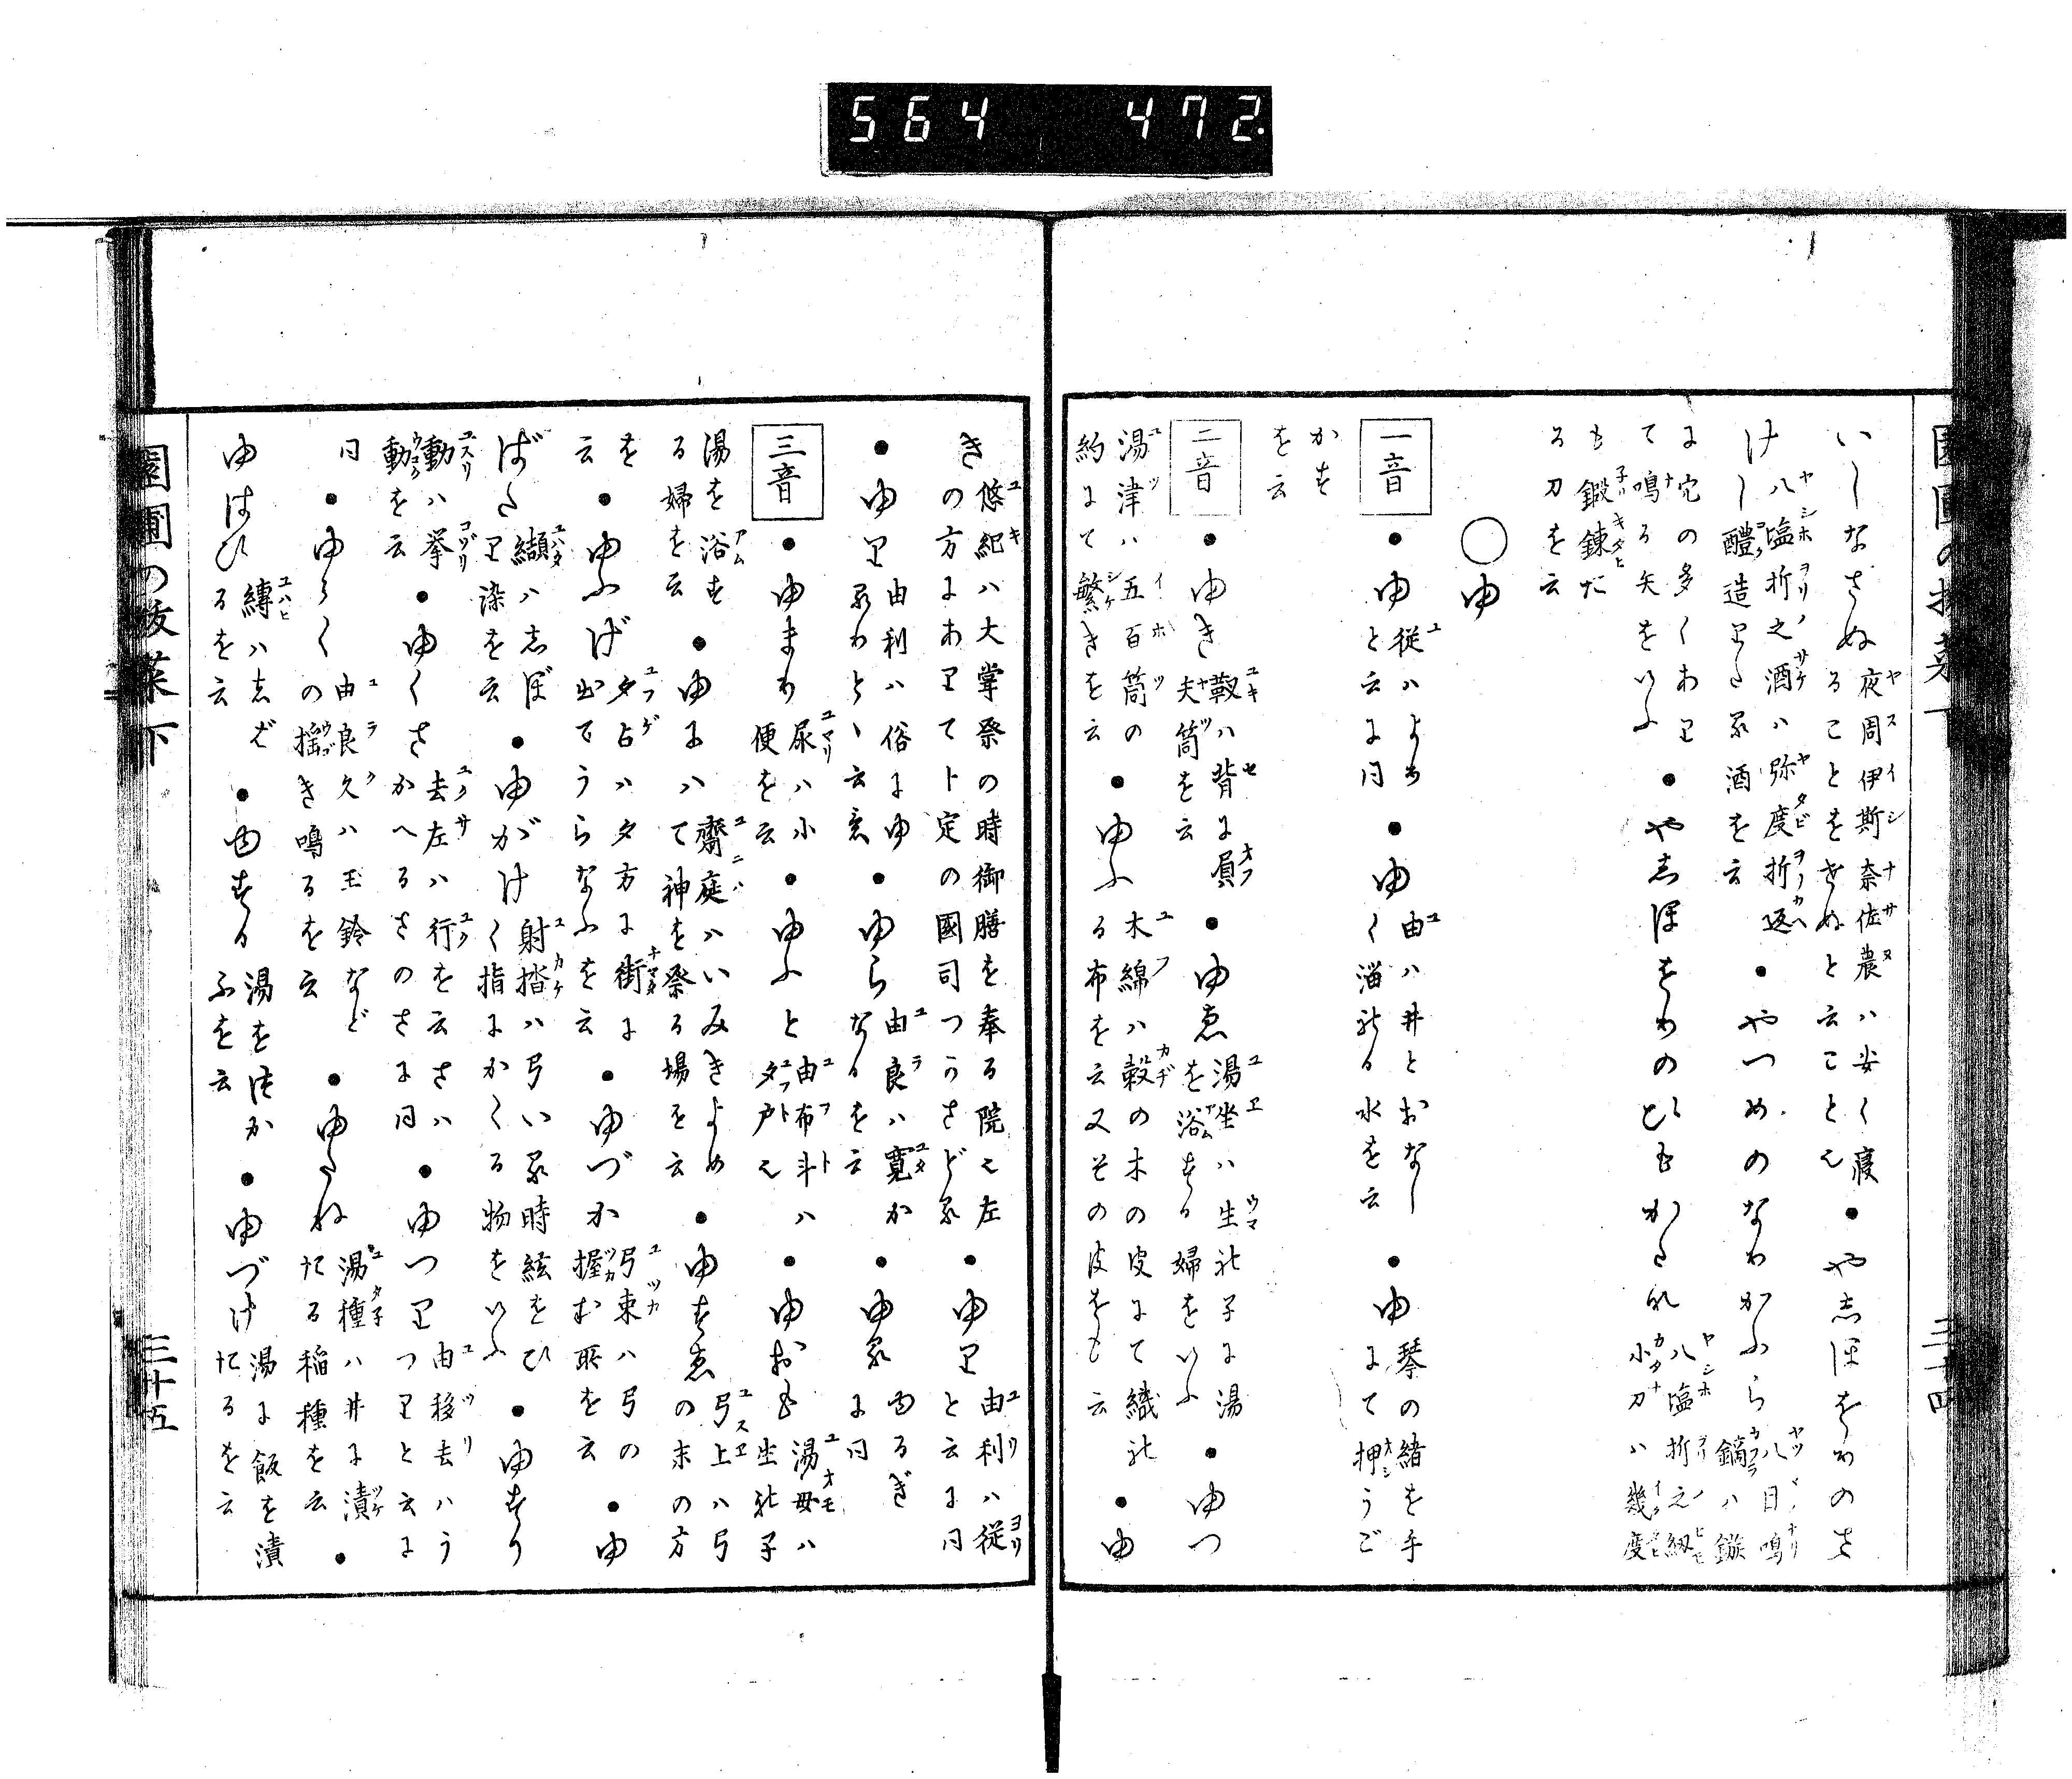 564 472.
いしなさぬ 夜周伊斯奈佐農ハ安く寝
ることをさぬと云ことゝ ●や志ほをりのさ
け 八塩折之酒ハ弥度折返
し醴造りたる酒を云 ●やつめのなりかふら 八目鳴
鏑ハ鏃
に穴の多くあり
て鳴る矢をいふ ●や志ほをりのひもかたな 八塩折之紐
小刀ハ幾度
も鍛錬た
る刀を云
○ゆ
一音 ●ゆ 従ハより
と云に同 ●ゆ 由ハ井とおなし
く溜れる水を云 ●ゆ 琴の緒を手
にて押うご
かす
を云
二音 ●ゆき 靫ハ背に負
夫筒を云 ●ゆゑ 湯坐ハ生れ子に湯
を浴する婦をいふ ●ゆつ
湯津ハ五百箇の
約にて繁きを云 ●ゆふ 木綿ハ穀の木の皮にて織れ
る布を云又その皮をも云 ●ゆ
き 悠紀ハ大掌祭の時御膳を奉る院と左
の方にありて卜定の國司つうさどる ●ゆり 由利ハ従
と云に同
●ゆり 由利ハ俗にゆ
るりと云意 ●ゆら 由良ハ寛か
なるを云 ●ゆる ゆるぎ
に同
三音 ●ゆまり 尿ハ小
便を云 ●ゆふと 由布斗ハ
夕戸と ●ゆおも 湯母ハ
坐れ子
湯を浴す
る婦を云 ●ゆにハ 齋庭ハいみきよめ
て神を祭る場を云 ●ゆすゑ 弓上ハ弓
の末の方
を
云 ●ゆふげ 夕占ハ夕方に街に
出てうらなふを云 ●ゆづか 弓束ハ弓の
握む所を云 ●ゆ
ばた 纈ハ志ぼ
り染を云 ●ゆがけ 射揩ハ弓いる時絃をひ
く指にかくる物をいふ ●ゆすり
動ハ挙
動を云 ●ゆくさ 去左ハ行を云さハ
かへるさのさに同 ●ゆつり 由移去ハう
つりと云に
同 ●ゆらく 由良久ハ玉鈴など
の揺き鳴るを云 ●ゆたね 湯種ハ井に漬
たる稲種を云 ●
ゆはひ 縛ハ志ば
るを云 ●ゆする 湯をつか
ふを云 ●ゆづけ 湯に飯を漬
たるを云
三十四
三十五